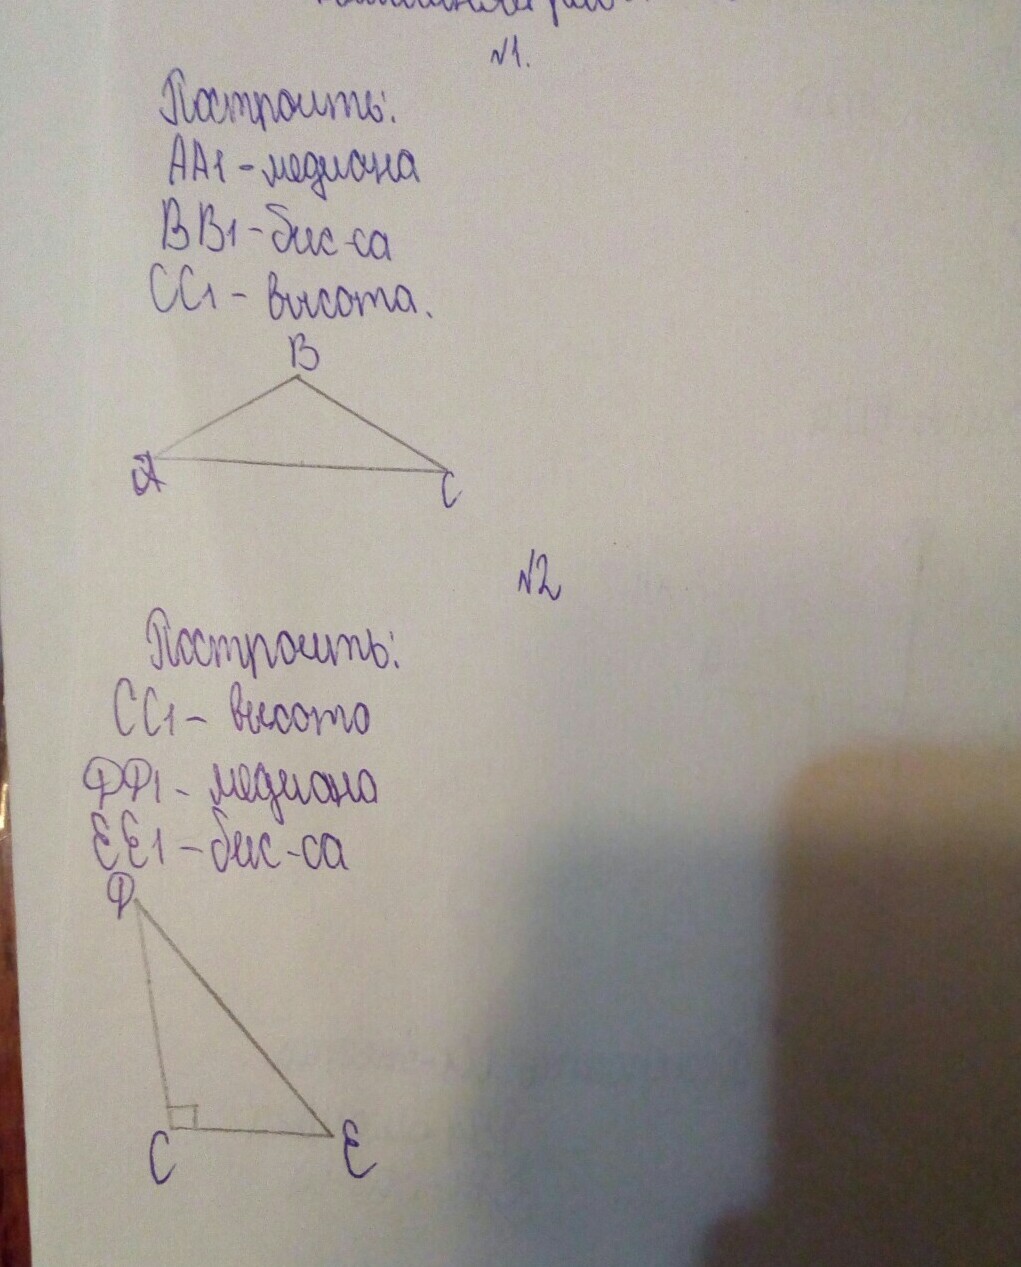 №1.
Построить:
АА1 - медиана
ВВ1 - бис-са
СС1 - высота.
В
А
С
№2
Построить:
СС1 - высота
ФФ1 - медиана
ЕЕ1 - бис-са
Ф
С
Е